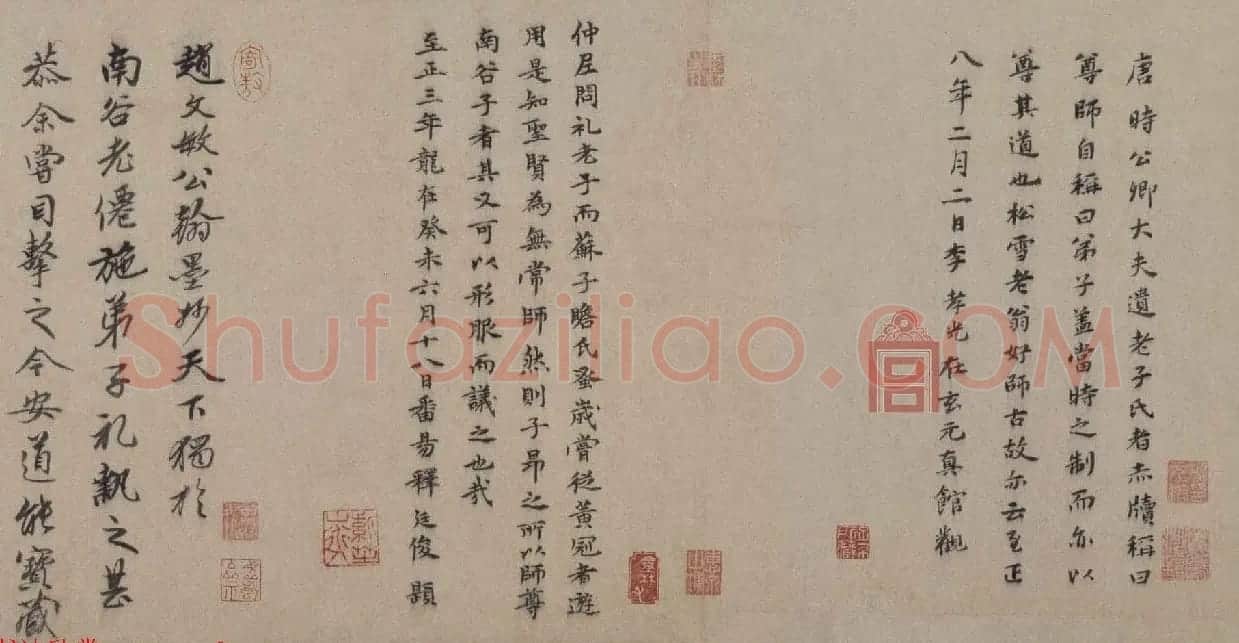 唐時公卿大夫遺老子氏者赤牘稱曰
尊師自稱曰弟子蓋當時之制而亦以
尊其道也松雪老翁好師古故亦云至正
八年二月二日李孝光在玄元真館觀
仲尼問礼老子而蘇子瞻氏蚤歲嘗從黃冠者遊
用是知聖賢為無常師然則子昂之所以師尊
南谷子者其又可以形服而議之也哉
至正三年龍在癸未六月十八日番昜釋廷俊題
趙文敏公翰墨妙天下獨於
南谷老僊施弟子礼執之甚
恭余嘗目擊之今安道能寶藏
Shufaziliao.COM